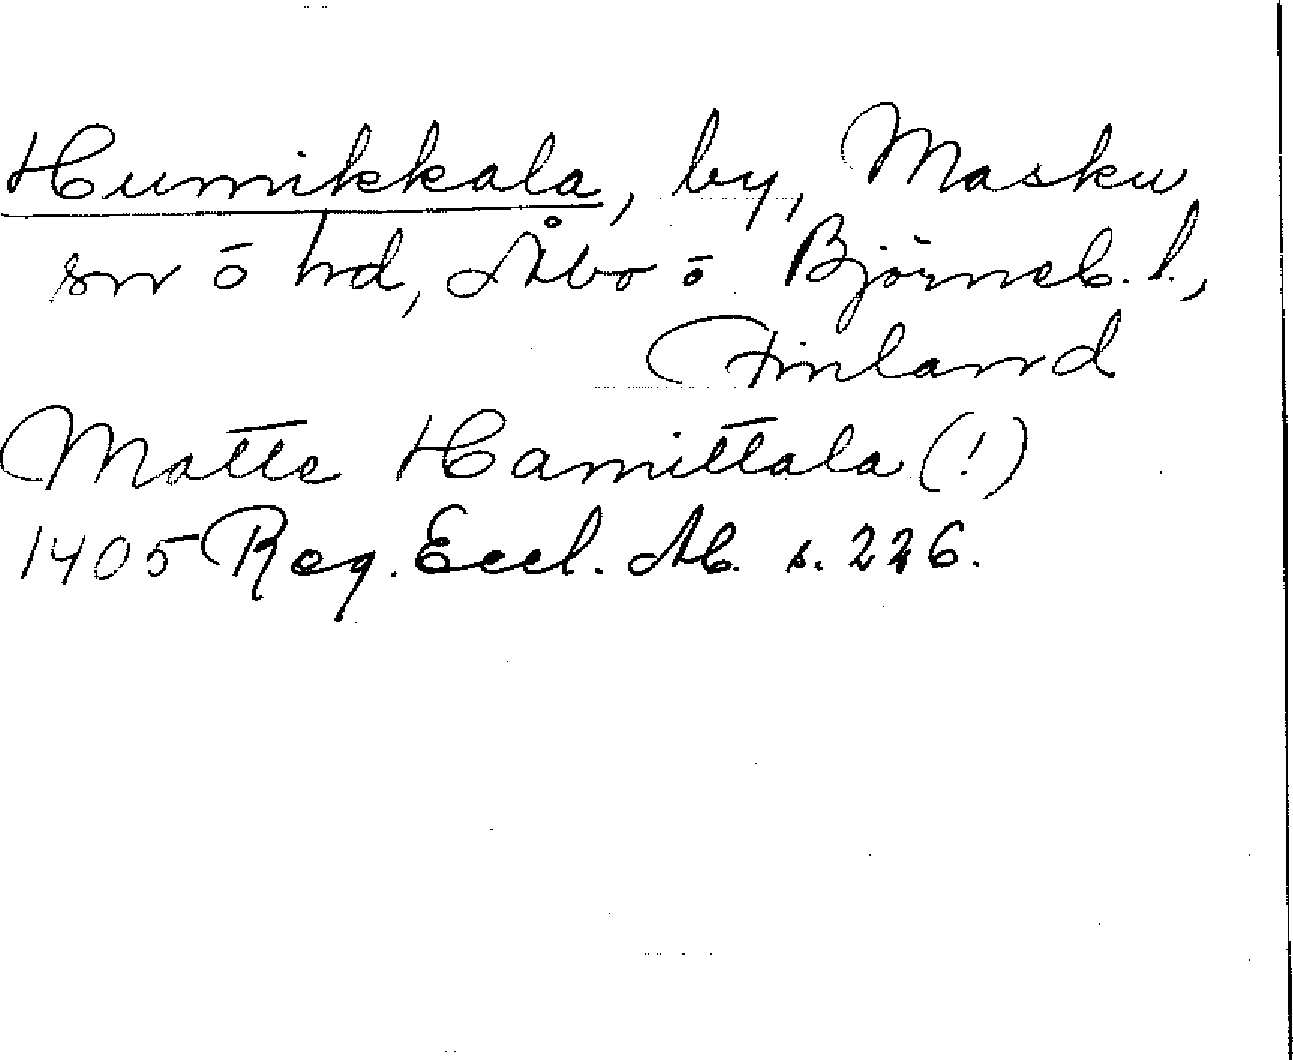 Humikkala, by, Masku
sn o hd, Åbo o Björneb. l.,
Finland
Matts Hamittala (!)
1405 Reg. Eccl. Ab. s. 226.